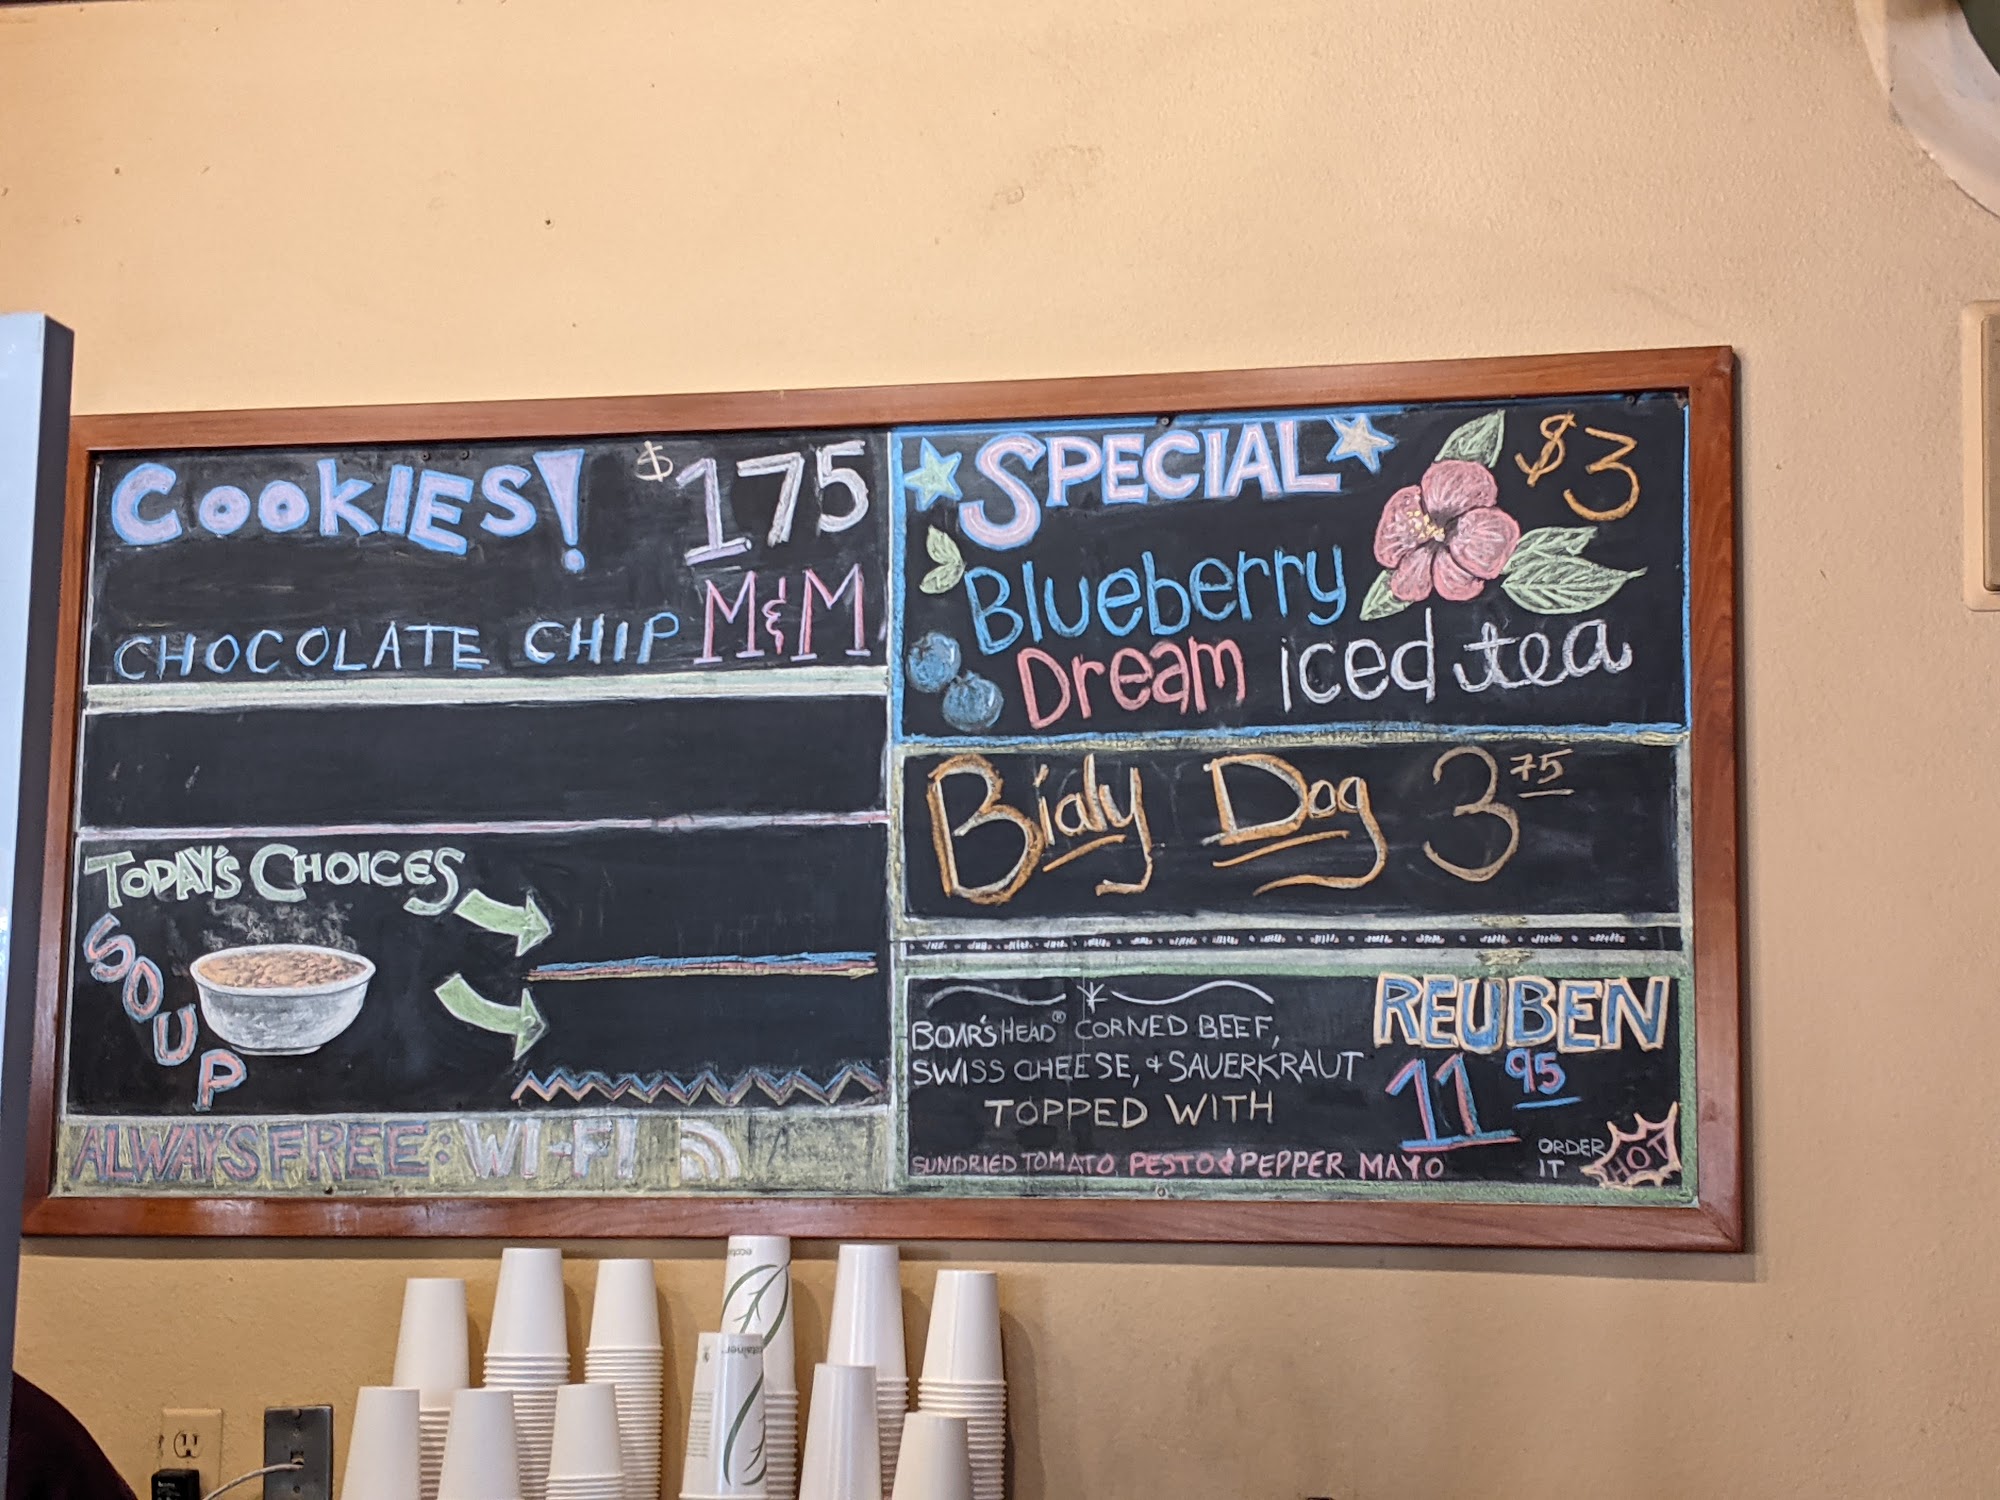 COOKIES! $175
CHOCOLATE CHIP M&M
TODAY'S CHOICES
SOUP
ALWAYS FREE: WI-FI
SPECIAL $3
Blueberry
Dream iced tea
Bialy Dog 3 75
REUBEN
11 95
BOAR'S HEAD® CORNED BEEF,
SWISS CHEESE, & SAUERKRAUT
TOPPED WITH
SUNDRIED TOMATO PESTO & PEPPER MAYO
ORDER
IT HOT